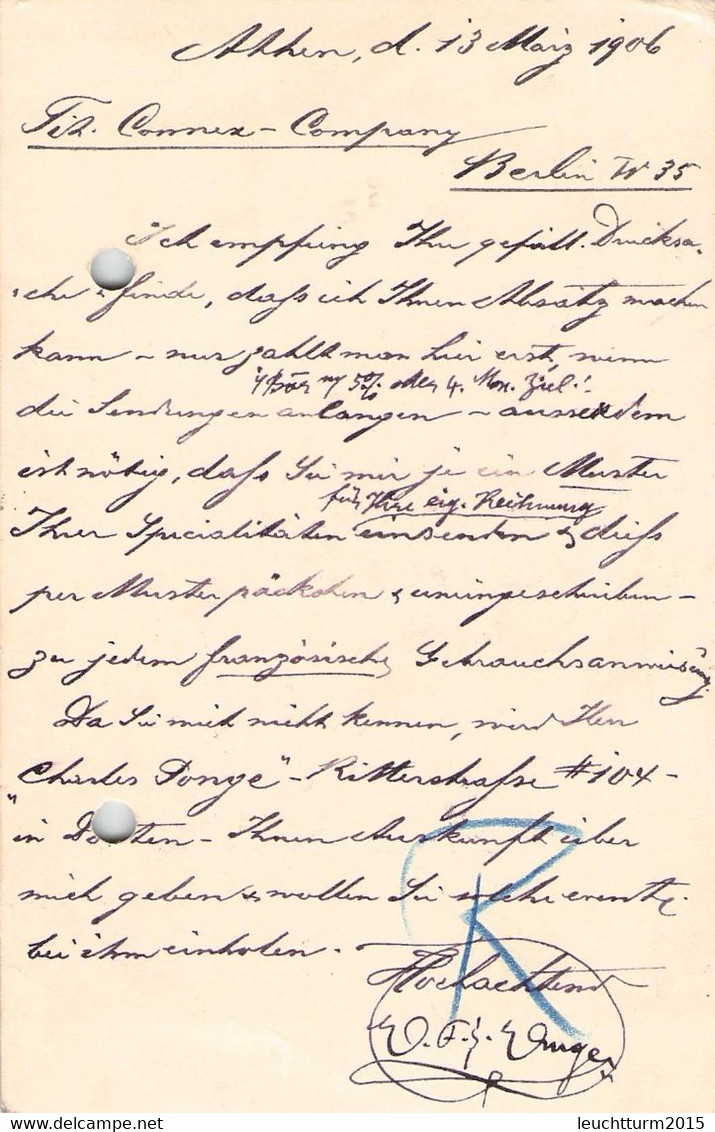 Athen, d. 13 März 1906
Tit. Connex-Company
Berlin W 35
Ich empfing Ihre gefäll. Drucksa-
che & finde, dass ich Ihnen Absatz machen
kann - nur zahlt man hier erst, wenn
5% oder 4. Mon. Ziel!
die Sendungen anlangen - ausserdem
ist nötig, dass Sie mir je ein Muster
für Ihre eig. Rechnung
Ihrer Specialitäten einsenden & diess
per Musterpäckchen & uneingeschrieben -
zu jedem französische Gebrauchsanweisung.
Da Sie mich nicht kennen, wird Herr
"Charles Ponge" - Ritterstrasse #104 -
in - Ihnen Auskunft über
mich geben & wollen Sie solche eventl.
bei ihm einholen.
Hochachtend
R
leuchtturm2015